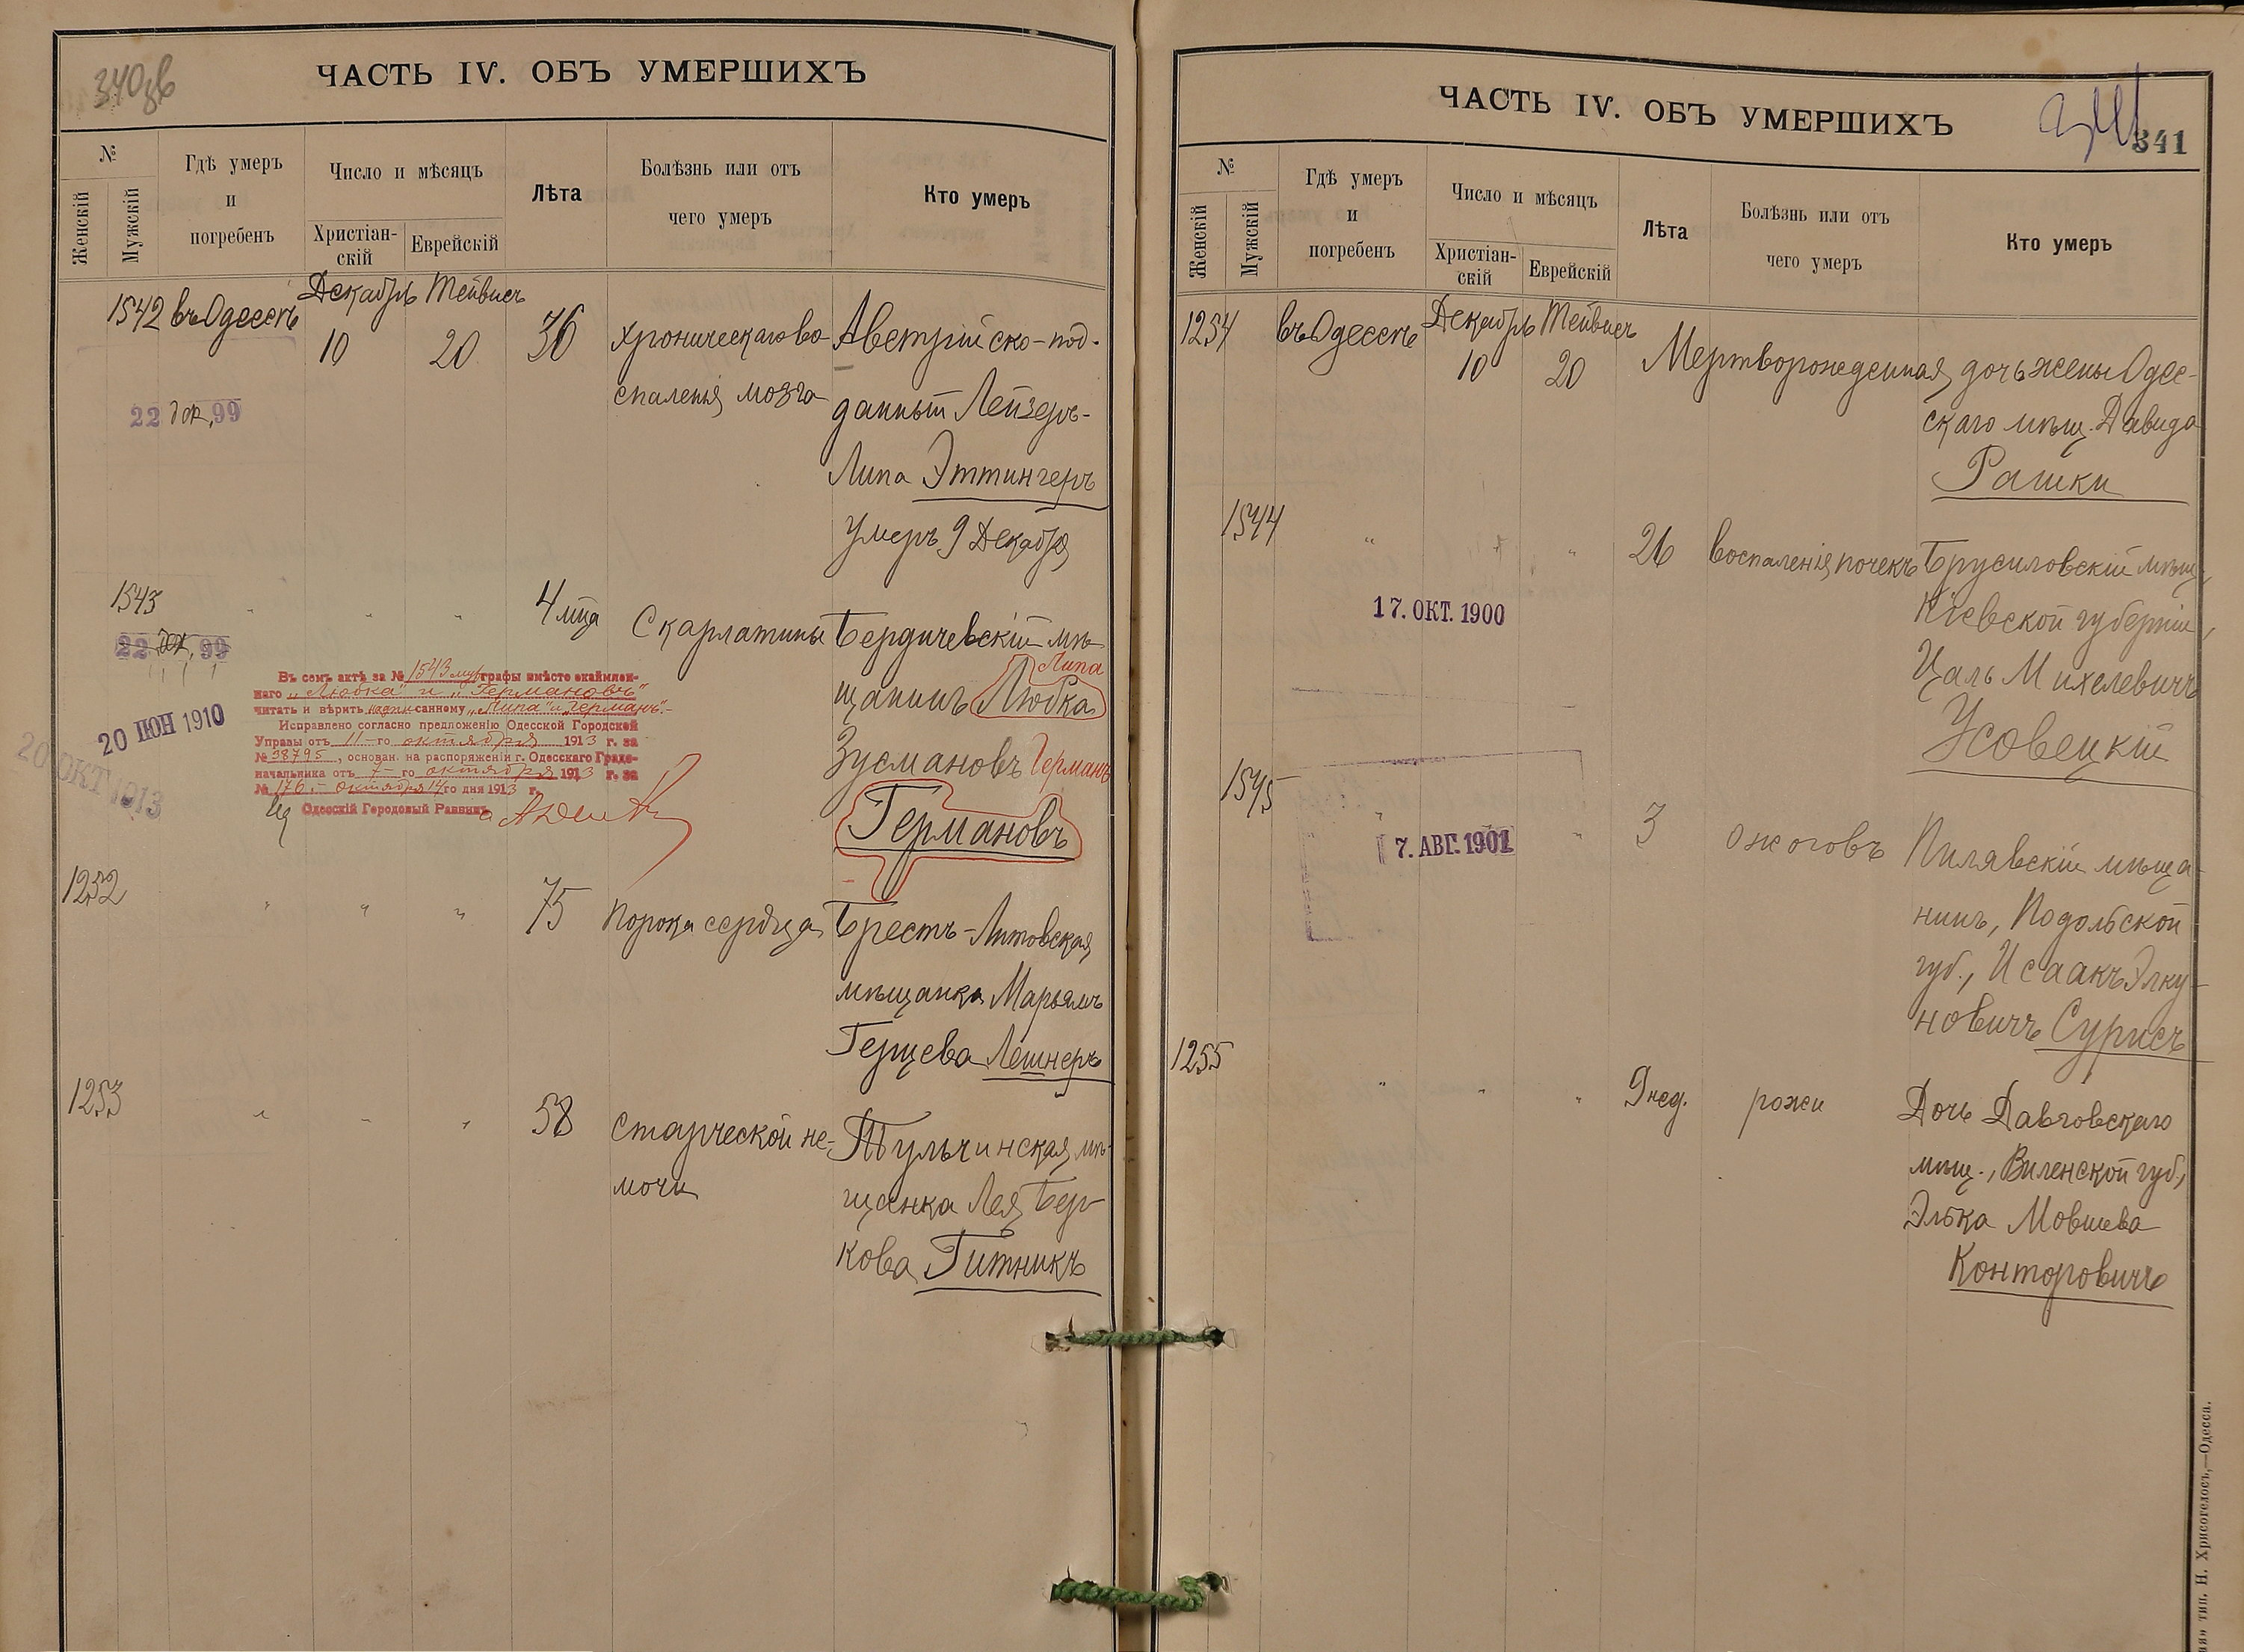 340зв
ЧАСТЬ IV. ОБЪ УМЕРШИХЪ
№
Женскій
Мужскій
Гдѣ умеръ
и
погребенъ
Число и мѣсяцъ
Христіан-
скій
Еврейскій
Лѣта
Болѣзнь или отъ
чего умеръ
Кто умеръ
Декабрь Тейвисъ
1542 въ Одессѣ 10 20 36 хроническаго во- Австрійско-под-
спаленія мозга
22 дек. 99
данный Лейзеръ-
Липа Эттингеръ
умеръ 9 Декабря
1543 " " " 4 м-ца Скарлатины Бердичевскій мѣ-
22 дек. 99
Липа
щанинъ Любка
Зусмановъ Германъ
Германовъ
Въ семъ актѣ за № 1543 муж графы вмѣсто окаймлен-
наго „Любка" и „Германовъ"
читать и вѣрить надписанному „Липа" и „Германъ".-
Исправлено согласно предложенію Одесской Городской
Управы отъ 11-го октября 1913 г. за
№ 38795, основан. на распоряженіи г. Одесскаго Градо-
начальника отъ 7-го октября 1913 г. за
№ 176.- октября 14го дня 1913 г.
Одесскій Городовый Раввинъ
20 ІЮН 1910
20 ОКТ 1913
1252 " " " 75 порока сердца Брестъ-Литовская
мѣщанка Марьямъ
Герцева Лешнеръ
1253 " " " 58 старческой не- Тульчинская мѣ-
мочи
щанка Лея Бер-
кова Гитникъ
ЧАСТЬ IV. ОБЪ УМЕРШИХЪ
341
№
Женскій
Мужскій
Гдѣ умеръ
и
погребенъ
Число и мѣсяцъ
Христіан-
скій
Еврейскій
Лѣта
Болѣзнь или отъ
чего умеръ
Кто умеръ
Декабрь Тейвисъ
1254 въ Одессѣ 10 20 Мертворожденная дочь жены Одес-
скаго мѣщ. Давида
Рашки
1544 " " " 26 воспаленія почекъ Брусиловскій мѣщ.,
17. ОКТ. 1900
Кіевской губерніи,
Цаль Михелевичъ
Усовецкій
1545 " " 3 ожоговъ Пилявскій мѣща-
7. АВГ. 1901
нинъ, Подольской
губ., Исаакъ Элку-
новичъ Сурисъ
1255 " " " 9 нед. рожи Дочь Давговскаго
мѣщ., Виленской губ.,
Элька Мовшева
Конторовичъ
тип. Н. Хрисогелосъ,—Одесса.